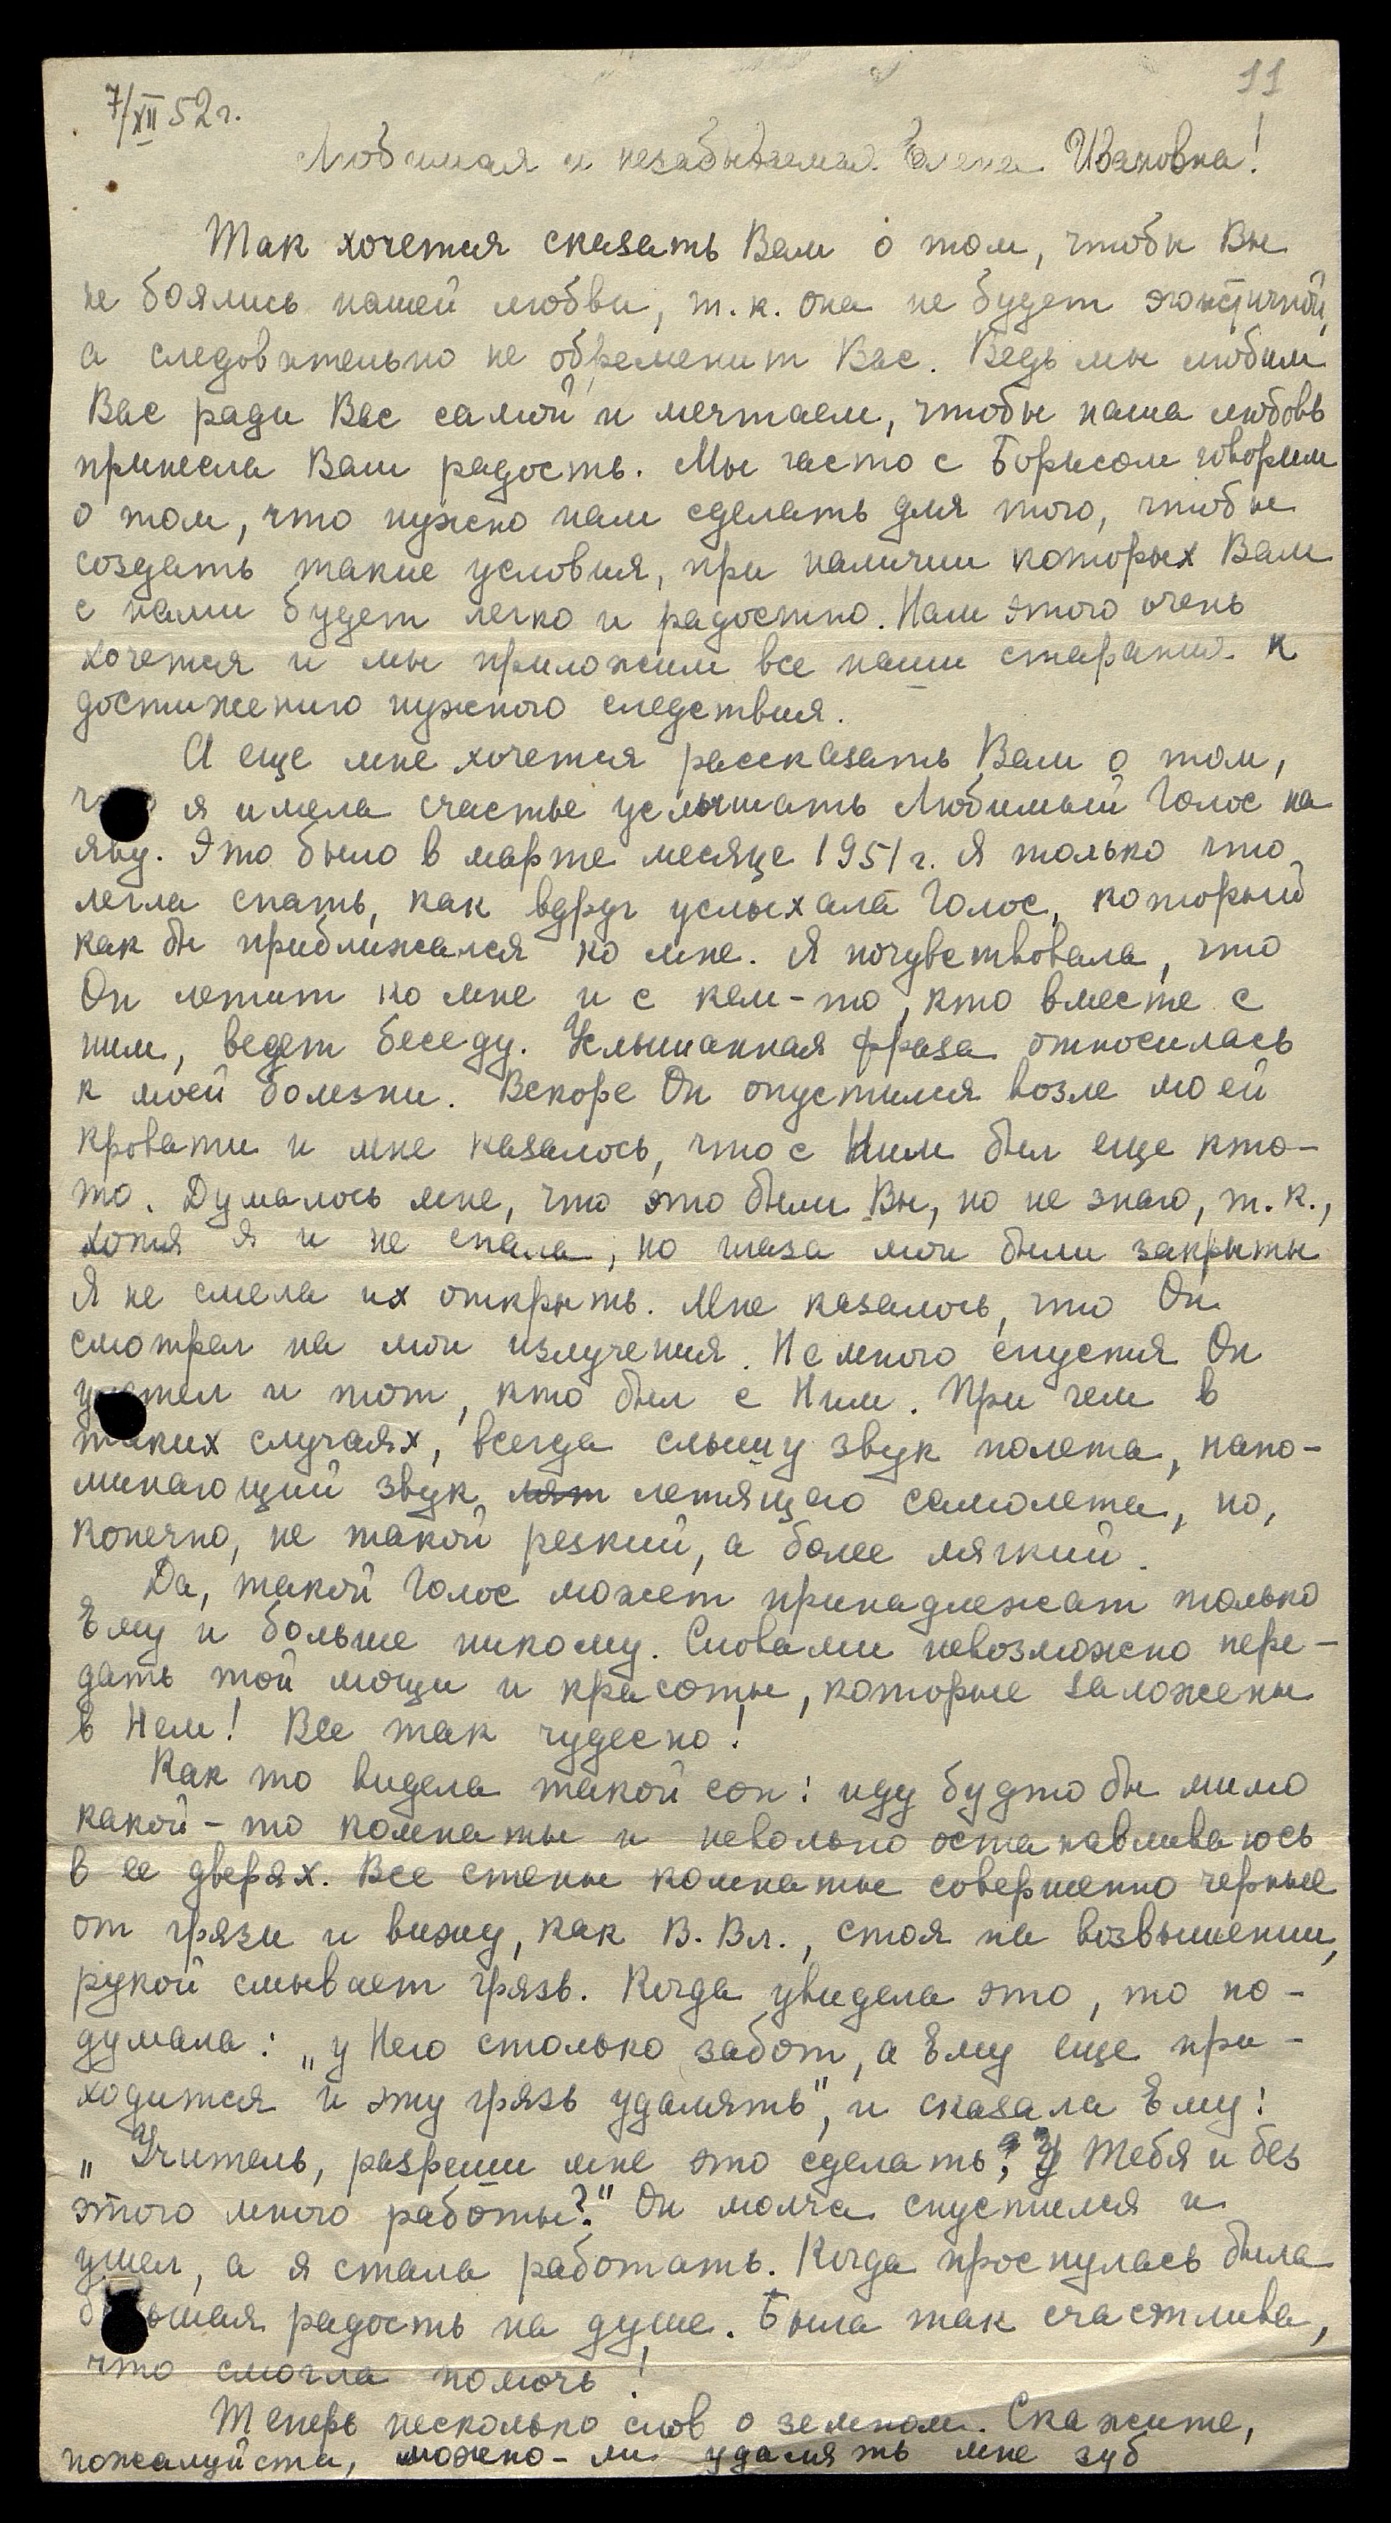 11
7/XII 52 г.
Любимая и незабываемая Елена Ивановна!
Так хочется сказать Вам о том, чтобы Вы
не боялись нашей любви, т.к. она не будет эгоистичной,
а следовательно не обременит Вас. Ведь мы любим
Вас ради Вас самой и мечтаем, чтобы наша любовь
принесла Вам радость. Мы часто с Борисом говорим
о том, что нужно нам сделать для того, чтобы
создать такие условия, при наличии которых Вам
с нами будет легко и радостно. Нам этого очень
хочется и мы приложим все наши старания к
достижению нужного следствия.
А еще мне хочется рассказать Вам о том,
что я имела счастье услышать Любимый Голос на
яву. Это было в марте месяце 1951 г. Я только что
легла спать, как вдруг услыхала Голос, который
как бы приближался ко мне. Я почувствовала, что
Он летит ко мне и с кем-то, кто вместе с
ним, ведет беседу. Услышанная фраза относилась
к моей болезни. Вскоре Он опустился возле моей
кровати и мне казалось, что с Ним был еще кто-
то. Думалось мне, что это были Вы, но не знаю, т.к.,
хотя я и не спала, но глаза мои были закрыты
Я не смела их открыть. Мне казалось, что Он
смотрел на мои излучения. Немного спустя Он
улетел и тот, кто был с Ним. При чем в
таких случаях, всегда слышу звук полета, напо-
минающий звук лят летящего самолета, но,
конечно, не такой резкий, а более мягкий.
Да, такой Голос может принадлежат только
Ему и больше никому. Словами невозможно пере-
дать той мощи и красоты, которые заложены
в Нем! Все так чудесно!
Как то видела такой сон: иду будто бы мимо
какой-то комнаты и невольно останавливаюсь
в ее дверях. Все стены комнаты совершенно черные
от грязи и вижу, как В. Вл., стоя на возвышении,
рукой смывает грязь. Когда увидела это, то по-
думала: „у Него столько забот, а Ему еще при-
ходится и эту грязь удалять", и сказала Ему:
„Учитель, разреши мне это сделать? У Тебя и без
этого много работы?" Он молча спустился и
ушел, а я стала работать. Когда проснулась была
большая радость на душе. Была так счастлива,
что смогла помочь!
Теперь несколько слов о земном. Скажите,
пожалуйста, можно-ли удалять мне зуб